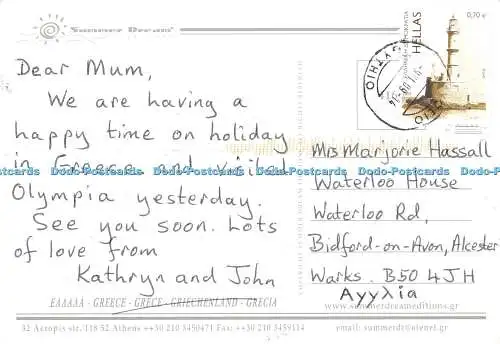 Summer Dream
0,70 €
HELLAS
Dear Mum,
We are having a
happy time on holiday
in Greece and visited
Olympia yesterday.
See you soon. Lots
of love from
Kathryn and John
Mrs Marjorie Hassall
Waterloo House
Waterloo Rd,
Bidford-on-Avon, Alcester
Warks. B50 4JH
Αγγλία
Dodo-Postcards Dodo-Postcards Dodo-Postcards Dodo-Postcards Dodo-Postcards
ΕΛΛΑΔΑ - GREECE - GRECE - GRIECHENLAND - GRECIA
www.summerdreameditions.gr
32 Aeropis str. 118 52 Athens ++30 210 3450471 Fax: ++30 210 3459114
email: summerdr@otenet.gr